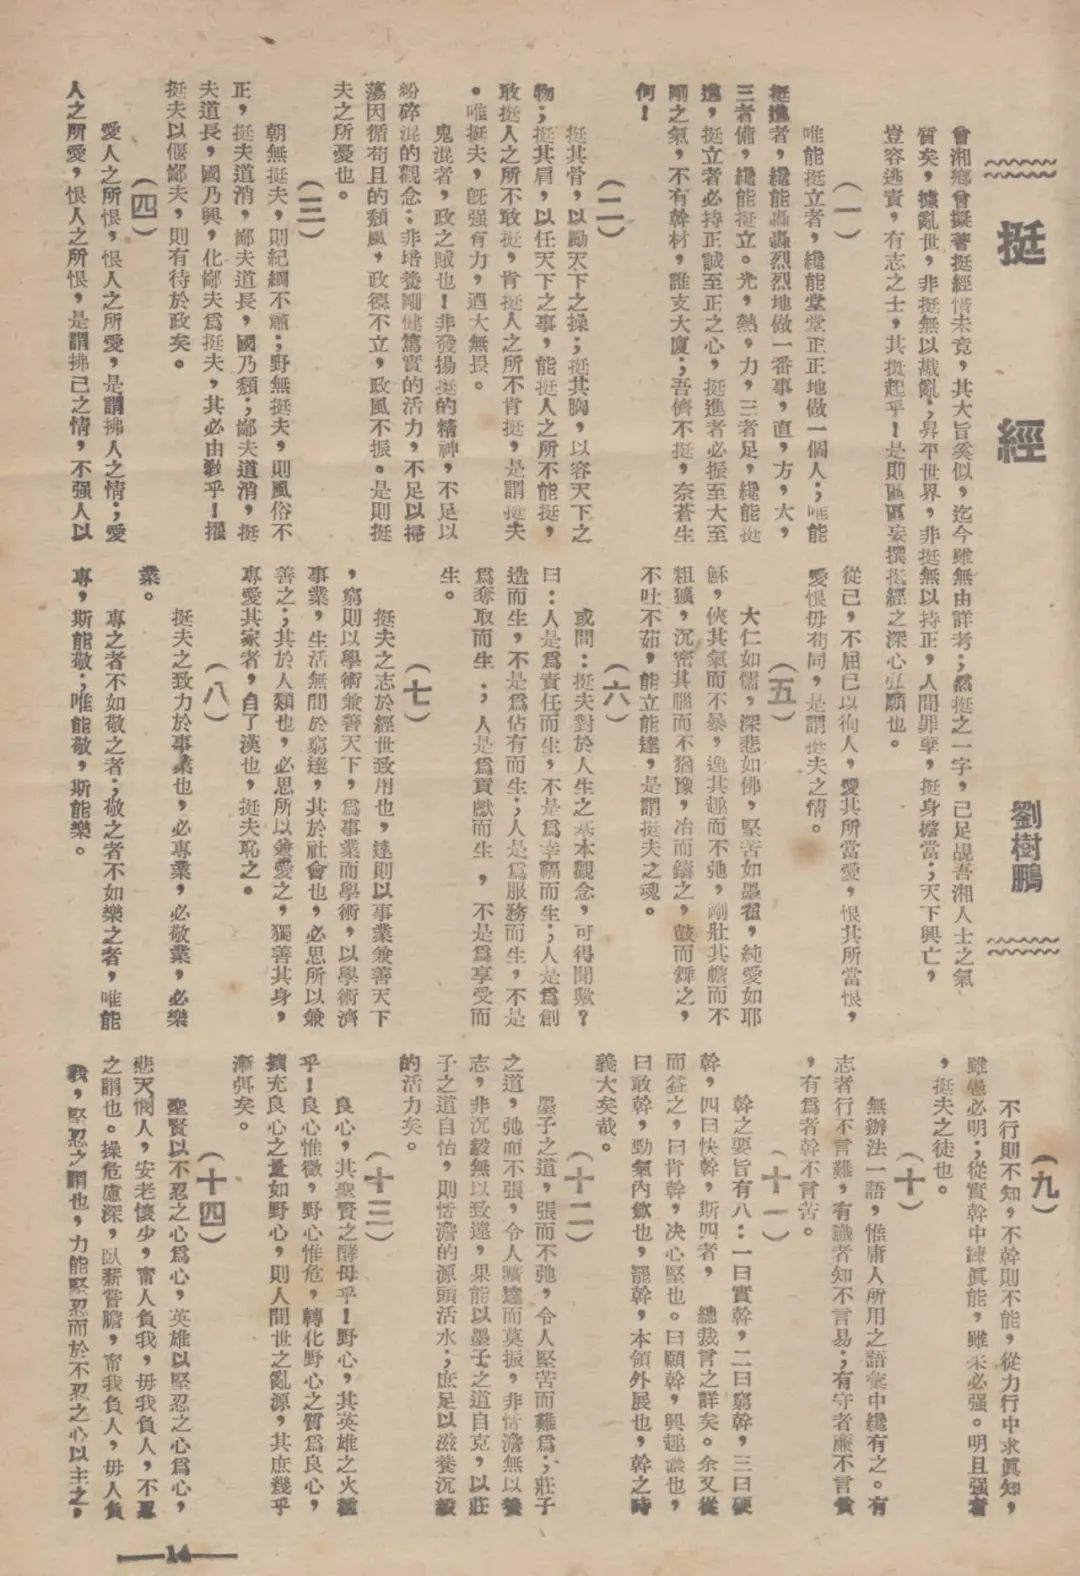 挺經
劉樹鵬
曾湘鄉曾擬著挺經惜未竟，其大旨奚似，迄今雖無由詳考；然挺之一字，已足覘吾湘人士之氣
質矣，擾亂世，非挺無以戡亂；昇平世界，非挺無以持正，人間罪孽，挺身擔當；天下興亡，
豈容逃責，有志之士，其挺起乎！是則區區妄撰挺經之深心弘願也。
（一）
唯能挺立者，纔能堂堂正正地做一個人；唯能
挺進者，纔能轟轟烈烈地做一番事，直，方，大，
三者備，纔能挺立。光，熱，力，三者足，纔能挺
進，挺立者必持正誠至正之心，挺進者必振至大至
剛之氣，不有幹材，誰支大廈；吾儕不挺，奈蒼生
何！
（二）
挺其骨，以勵天下之操；挺其胸，以容天下之
物；挺其肩，以任天下之事，能挺人之所不能挺，
敢挺人之所不敢挺，肯挺人之所不肯挺，是謂挺夫
。唯挺夫，旣强有力，迺大無畏。
鬼混者，政之賊也！非發揚挺的精神，不足以
粉碎混的觀念；非培養剛健篤實的活力，不足以掃
蕩因循苟且的頹風，政德不立，政風不振。是則挺
夫之所憂也。
（三）
朝無挺夫，則紀綱不肅；野無挺夫，則風俗不
正，挺夫道消，鄙夫道長，國乃頹；鄙夫道消，挺
夫道長，國乃興，化鄙夫爲挺夫，其必由敎乎！擢
挺夫以偃鄙夫，則有待於政矣。
（四）
愛人之所恨，恨人之所愛，是謂拂人之情；愛
人之所愛，恨人之所恨，是謂拂己之情，不强人以
從己，不屈已以徇人，愛其所當愛，恨其所當恨，
愛恨毋苟同，是謂挺夫之情。
（五）
大仁如儒，深悲如佛，堅苦如墨翟，純愛如耶
穌，俠其氣而不暴，逸其趣而不弛，剛壯其膽而不
粗獷，沉密其腦而不猶豫，冶而鑄之，鼓而舞之，
不吐不茹，能立能達，是謂挺夫之魂。
（六）
或問：挺夫對於人生之基本觀念，可得聞歟？
曰：人是爲責任而生，不是爲幸福而生；人是爲創
造而生，不是爲佔有而生；人是爲服務而生，不是
爲奪取而生；人是爲貢獻而生，不是爲享受而
生。
（七）
挺夫之志於經世致用也，達則以事業兼善天下
，窮則以學術兼善天下，爲事業而學術，以學術濟
事業，生活無間於窮達，其於社會也，必思所以兼
善之；其於人類也，必思所以兼愛之，獨善其身，
專愛其家者，自了漢也，挺夫恥之。
（八）
挺夫之致力於事業也，必專業，必敬業，必樂
業。
專之者不如敬之者；敬之者不如樂之者，唯能
專，斯能敬；唯能敬，斯能樂。
（九）
不行則不知，不幹則不能，從力行中求眞知，
雖愚必明；從實幹中練眞能，雖柔必强。明且强者
，挺夫之徒也。
（十）
無辦法一語，惟庸人所用之語彙中纔有之。有
志者行不言難，有識者知不言易；有守者廉不言貧
，有爲者幹不言苦。
（十一）
幹之要旨有八：一曰實幹，二曰窮幹，三曰硬
幹，四曰快幹，斯四者，總裁言之詳矣。余又從
而益之，曰肯幹，決心堅也。曰願幹，興趣濃也，
曰敢幹，勁氣內歛也，能幹，本領外展也，幹之時
義大矣哉。
（十二）
墨子之道，張而不弛，令人堅苦而難爲；莊子
之道，弛而不張，令人曠達而莫振，非恬澹無以養
志，非沉毅無以致遠，果能以墨子之道自克，以莊
子之道自怡，則恬澹的源頭活水；庶足以滋養沉毅
的活力矣。
（十三）
良心，其聖賢之酵母乎！野心，其英雄之火種
乎！良心惟微，野心惟危，轉化野心之質爲良心，
擴充良心之量如野心，則人間世之亂源，其庶幾乎
漸弭矣。
（十四）
聖賢以不忍之心爲心，英雄以堅忍之心爲心，
悲天憫人，安老懷少，甯人負我，毋我負人，不忍
之謂也。操危慮深，臥薪嘗膽，甯我負人，毋人負
我，堅忍之謂也，力能堅忍而於不忍之心以主之，
14